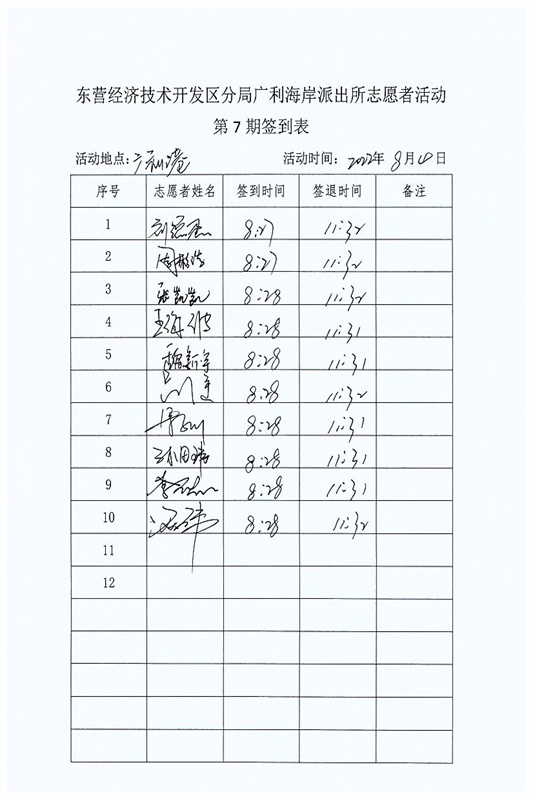 东营经济技术开发区分局广利海岸派出所志愿者活动
第 7 期签到表
活动地点: 广利港 活动时间: 2022年 8月 日
序号 志愿者姓名 签到时间 签退时间 备注
1 8:27 11:32
2 8:27 11:32
3 张凯凯 8:28 11:32
4 王海 8:28 11:31
5 新宇 8:28 11:31
6 8:28 11:32
7 8:28 11:31
8 8:28 11:31
9 李 8:28 11:31
10 8:28 11:32
11
12